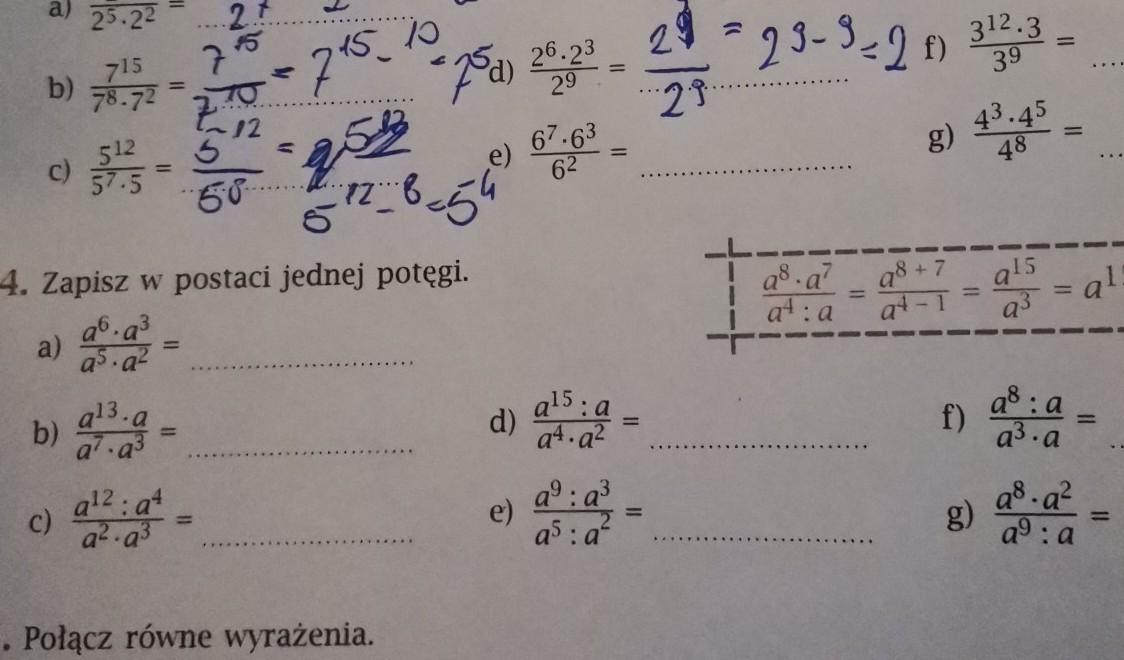 a) 2⁵·2² = 2⁷
b) 7¹⁵/7⁸·7² = 7¹⁵/7¹⁰ = 7¹⁵⁻¹⁰ = 7⁵
d) 2⁶·2³/2⁹ = 2⁹/2⁹ = 2⁹⁻⁹ = 2
f) 3¹²·3/3⁹ =
c) 5¹²/5⁷·5 = 5¹²/5⁸ = 5¹²⁻⁸ = 5⁴
e) 6⁷·6³/6² =
g) 4³·4⁵/4⁸ =
4. Zapisz w postaci jednej potęgi.
a⁸·a⁷/a⁴ : a = a⁸ ⁺ ⁷/a⁴ ⁻ ¹ = a¹⁵/a³ = a¹
a) a⁶·a³/a⁵·a² =
b) a¹³·a/a⁷·a³ =
d) a¹⁵ : a/a⁴·a² =
f) a⁸ : a/a³·a =
c) a¹² : a⁴/a²·a³ =
e) a⁹ : a³/a⁵ : a² =
g) a⁸·a²/a⁹ : a =
. Połącz równe wyrażenia.